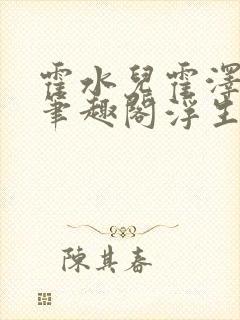 霍水兒霍澤
筆趣閣浮生
陳其春